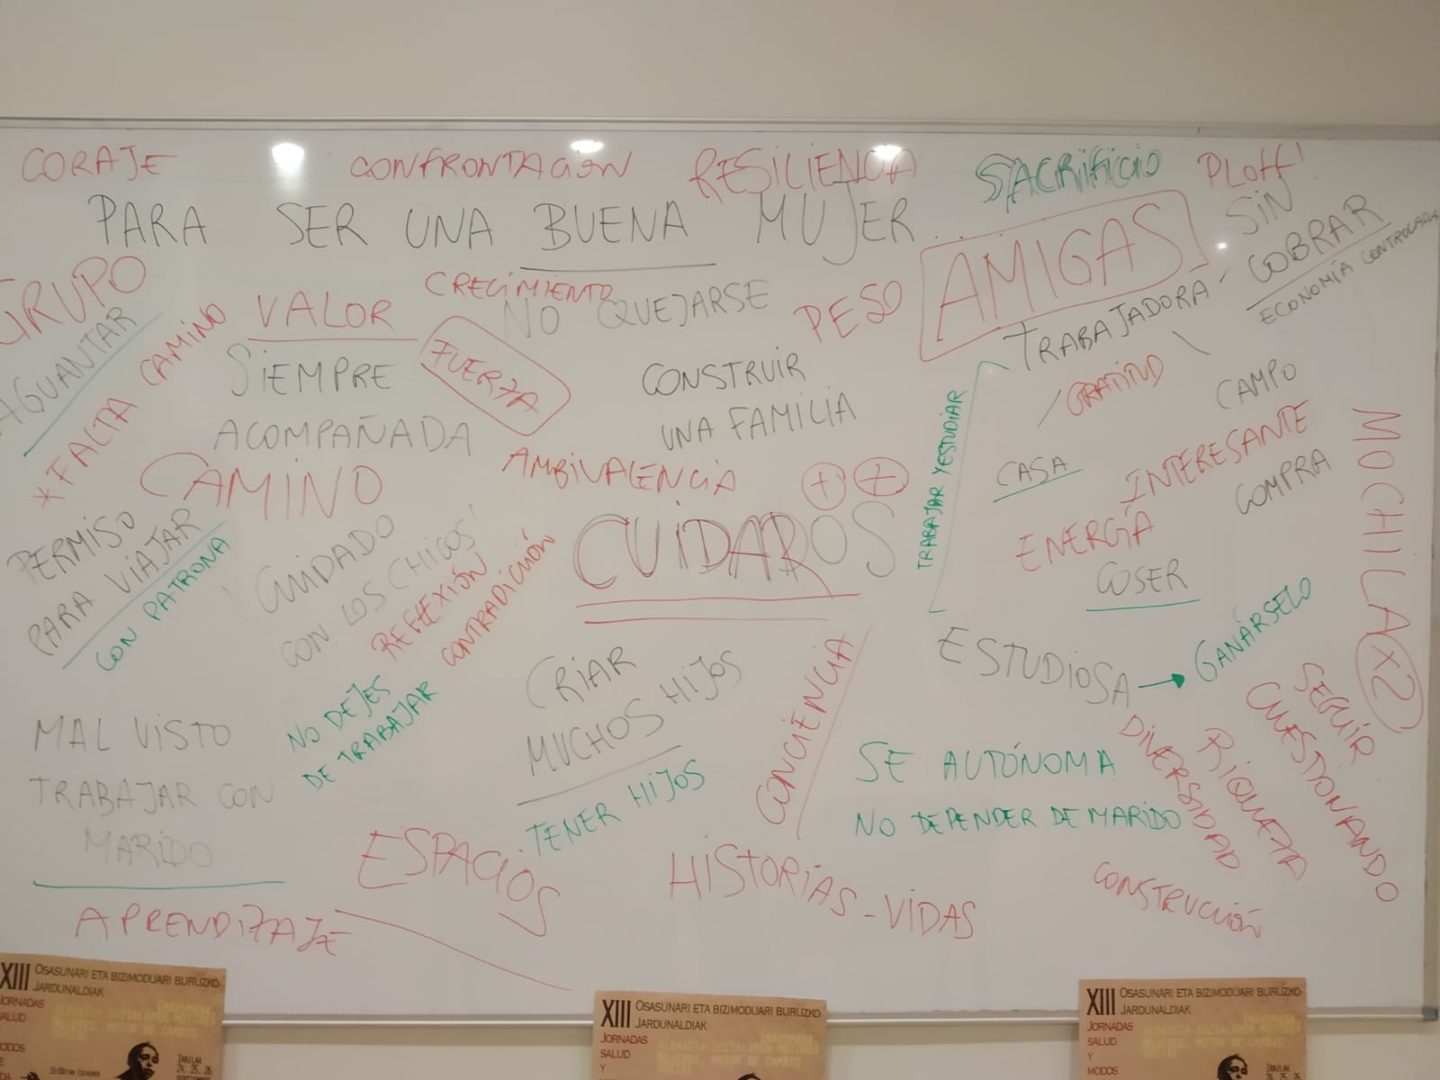 CORAJE
CONFRONTACIÓN
RESILIENCIA
SACRIFICIO
PLOFF!
PARA SER UNA BUENA MUJER...
AMIGAS
SIN
COBRAR
ECONOMÍA CONTROLADA
GRUPO
AGUANTAR
* FALTA CAMINO
VALOR
CRECIMIENTO
NO QUEJARSE
PESO
TRABAJADORA
SIEMPRE
ACOMPAÑADA
FUERZA
CONSTRUIR
UNA FAMILIA
TRABAJAR Y ESTUDIAR
GRATITUD
CAMPO
CASA
INTERESANTE
COMPRA
MOCHILA X2
CAMINO
AMBIVALENCIA
+ +
PERMISO
PARA VIAJAR
CON PATRONA
CUIDADO
CON LOS CHICOS!
REFLEXIÓN
CONTRADICCIÓN
CUIDAROS
ENERGÍA
COSER
ESTUDIOSA → GANÁRSELO
MAL VISTO
TRABAJAR CON
MARIDO
NO DEJES
DE TRABAJAR
CRIAR
MUCHOS HIJOS
TENER HIJOS
CONCIENCIA
SE AUTÓNOMA
NO DEPENDER DE MARIDO
DIVERSIDAD
RIQUEZA
SEGUIR
CUESTIONANDO
CONSTRUCCIÓN
ESPACIOS
HISTORIAS - VIDAS
APRENDIZAJE
XIII OSASUNARI ETA BIZIMODUARI BURUZKO
JARDUNALDIAK
JORNADAS
SALUD
XIII OSASUNARI ETA BIZIMODUARI BURUZKO
JARDUNALDIAK
JORNADAS
SALUD
Y
XIII OSASUNARI ETA BIZIMODUARI BURUZKO
JARDUNALDIAK
JORNADAS
SALUD
Y
MODOS